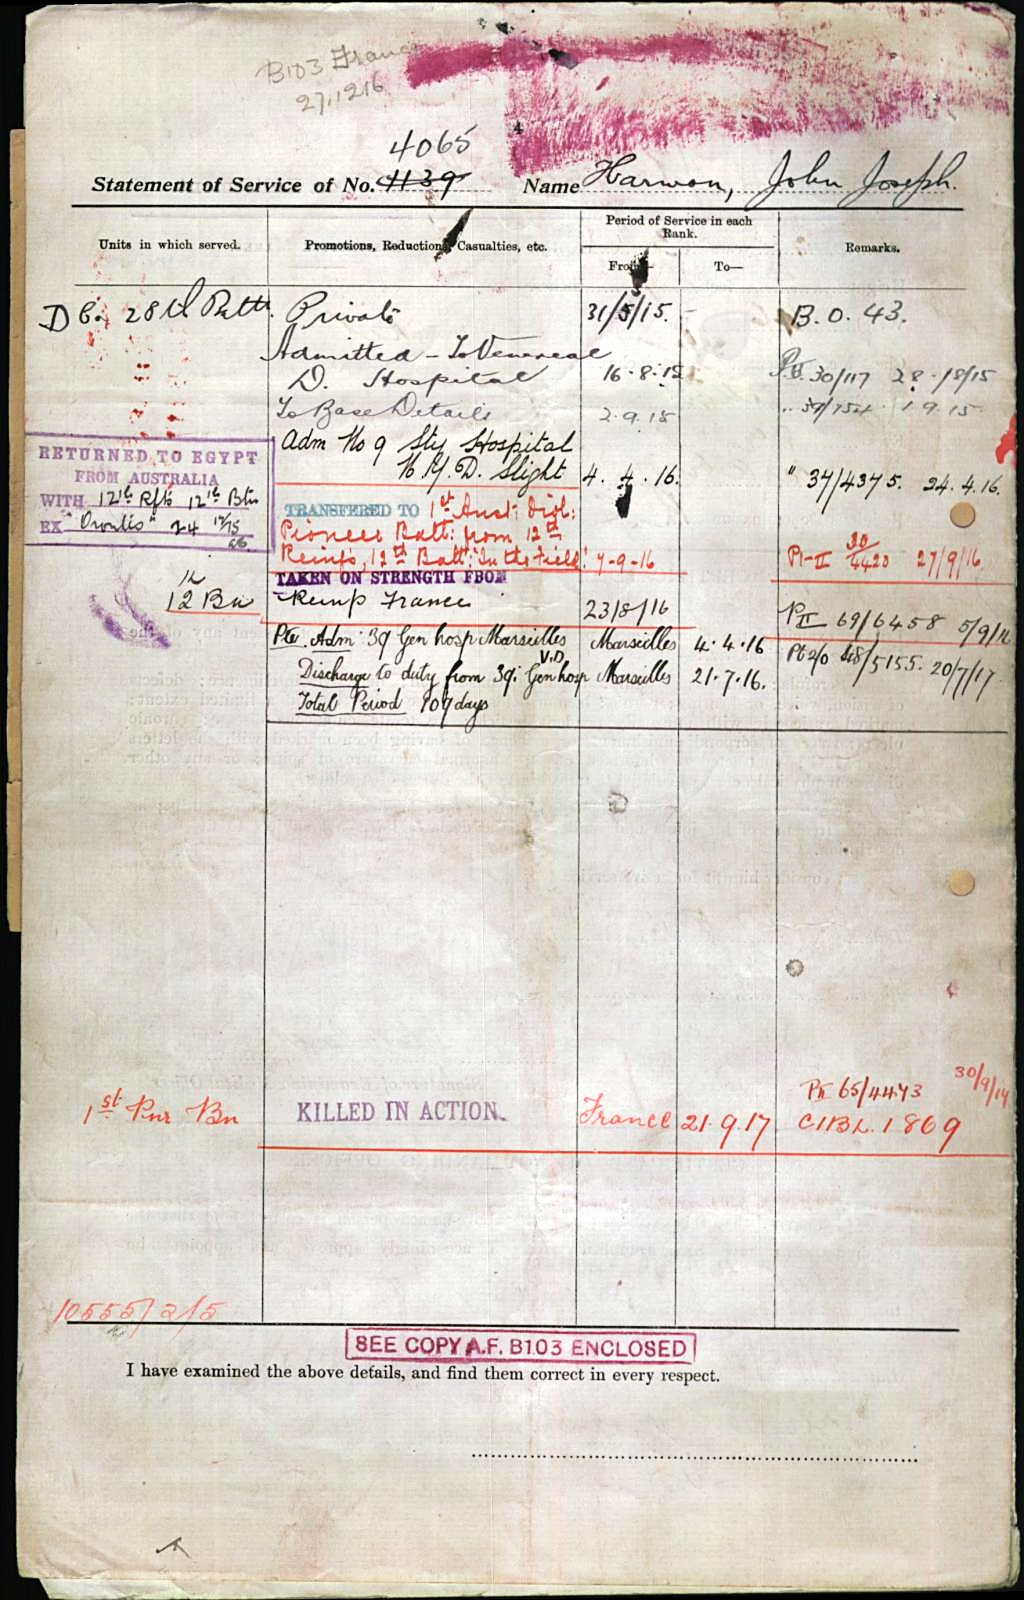 B103 France
27.12.16
4065
Statement of Service of No. 4139 Name Harwon, John Joseph.
Units in which served. Promotions, Reductions, Casualties, etc. Period of Service in each Rank. Remarks.
From— To—
D Co. 28th Batt. Private 31/5/15. - B.O. 43.
Admitted - To Venereal
D. Hospital 16.8.15 Pt II 30/117 28.18/15
To Base Details 2.9.15 1.9.15
Adm No 9 Sty Hospital
N.Y.D. Slight 4.4.16. " 37/4375. 24.4.16.
RETURNED TO EGYPT
FROM AUSTRALIA
WITH 12th Rfts 12th Btn
EX "Orontes" 24 12/15
TRANSFERED TO 1st Aust: Divl:
Pioneer Batt: from 12th
Reinfs, 12th Batt: "In the Field: 7-9-16 Pt-II 30/4420 27/9/16
TAKEN ON STRENGTH FROM
12
12 Bn Reinfs France 23/8/16 Pt II 69/6458 5/9/16
Pte. Adm: 39 Gen hosp Marseilles Marseilles 4.4.16 Pt 2/0 48/5155. 20/7/17
V.D
Discharge to duty from 39: Gen hosp Marseilles 21.7.16.
Total Period 109 days
30/9/17
Pt II 65/4473
1st Pnr Bn KILLED IN ACTION. France 21.9.17 C11BL. 1869
10555/2/5
SEE COPY A.F. B103 ENCLOSED
I have examined the above details, and find them correct in every respect.